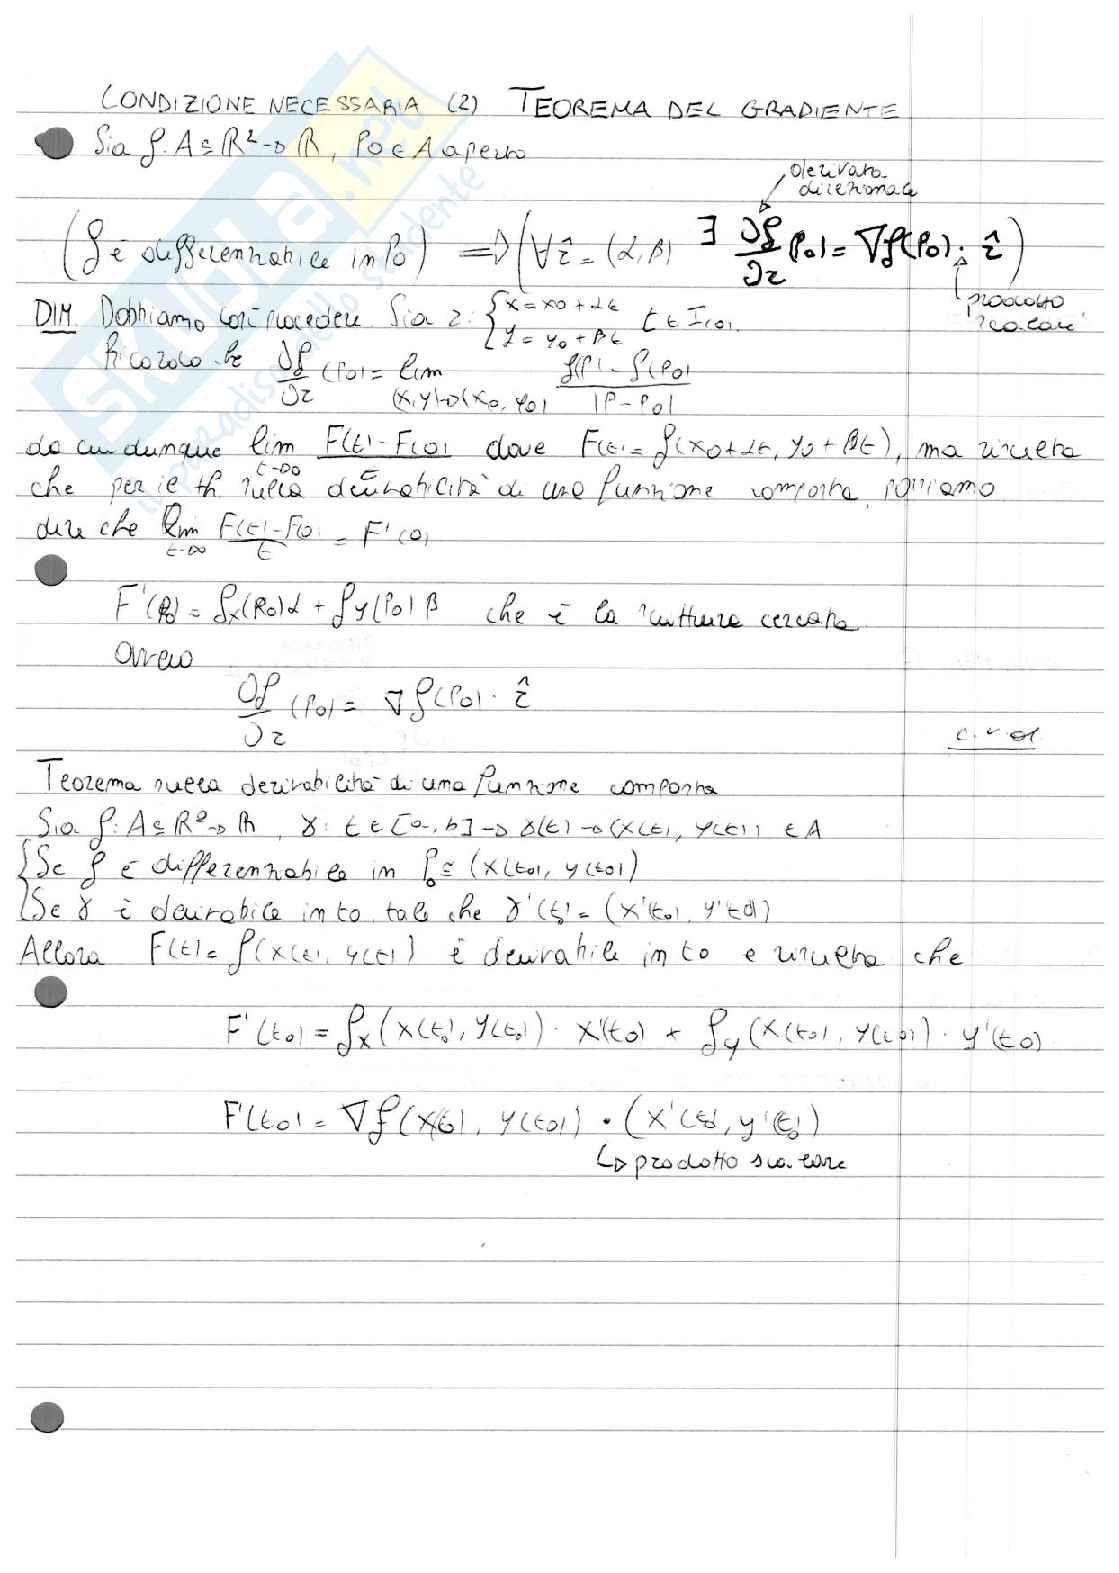 CONDIZIONE NECESSARIA (2) TEOREMA DEL GRADIENTE
Sia f: A ⊆ R² → R, P0 ∈ A aperto
derivata
direzionale
(f è differenziabile in P0) ⇒ (∀ r̂ = (α, β) ∃ ∂f/∂r (P0) = ∇f(P0) · r̂)
prodotto
scalare
DIM. Dobbiamo così procedere. Sia r: { x = x0 + αt
y = y0 + βt t ∈ I(0)
Ricordo che ∂f/∂r (P0) = lim (x,y)→(x0,y0) f(P) - f(P0) / |P - P0|
da cui dunque lim t→0 F(t) - F(0) / t dove F(t) = f(x0 + αt, y0 + βt), ma risulta
che per il th sulla derivabilità di una funzione composta possiamo
dire che lim t→0 F(t) - F(0) / t = F'(0)
F'(P0) = fx(P0)α + fy(P0)β che è la scrittura cercata
ovvero
∂f/∂r (P0) = ∇f(P0) · r̂
c.v.d.
Teorema sulla derivabilità di una funzione composta
Sia f: A ⊆ R² → R, γ: t ∈ [a, b] → γ(t) → (x(t), y(t)) ∈ A
{ Se f è differenziabile in P0 ≡ (x(t0), y(t0))
{ Se γ è derivabile in t0 tale che γ'(t0) = (x'(t0), y'(t0))
Allora F(t) = f(x(t), y(t)) è derivabile in t0 e risulta che
F'(t0) = fx(x(t0), y(t0)) · x'(t0) + fy(x(t0), y(t0)) · y'(t0)
F'(t0) = ∇f(x(t0), y(t0)) · (x'(t0), y'(t0))
↳ prodotto scalare
SKUOLA.net
il paradiso dello studente